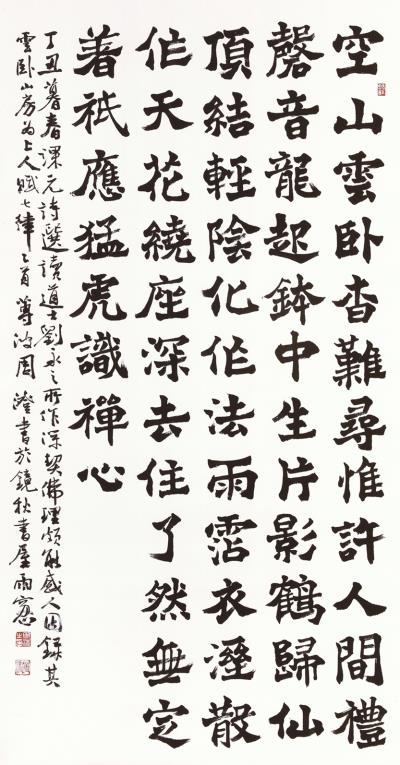 空山雲臥杳難尋惟許人間禮
磬音龍起鉢中生片影鶴歸仙
頂結輕陰化作法雨霑衣溼散
作天花繞座深去住了然無定
著祇應猛虎識禪心
丁丑暮春課元詩選讀道士劉永之所作深契佛理頗能感人因錄其
雲臥山房為上人賦七律乙首蓴波周澄書於鏡秋書屋雨窻